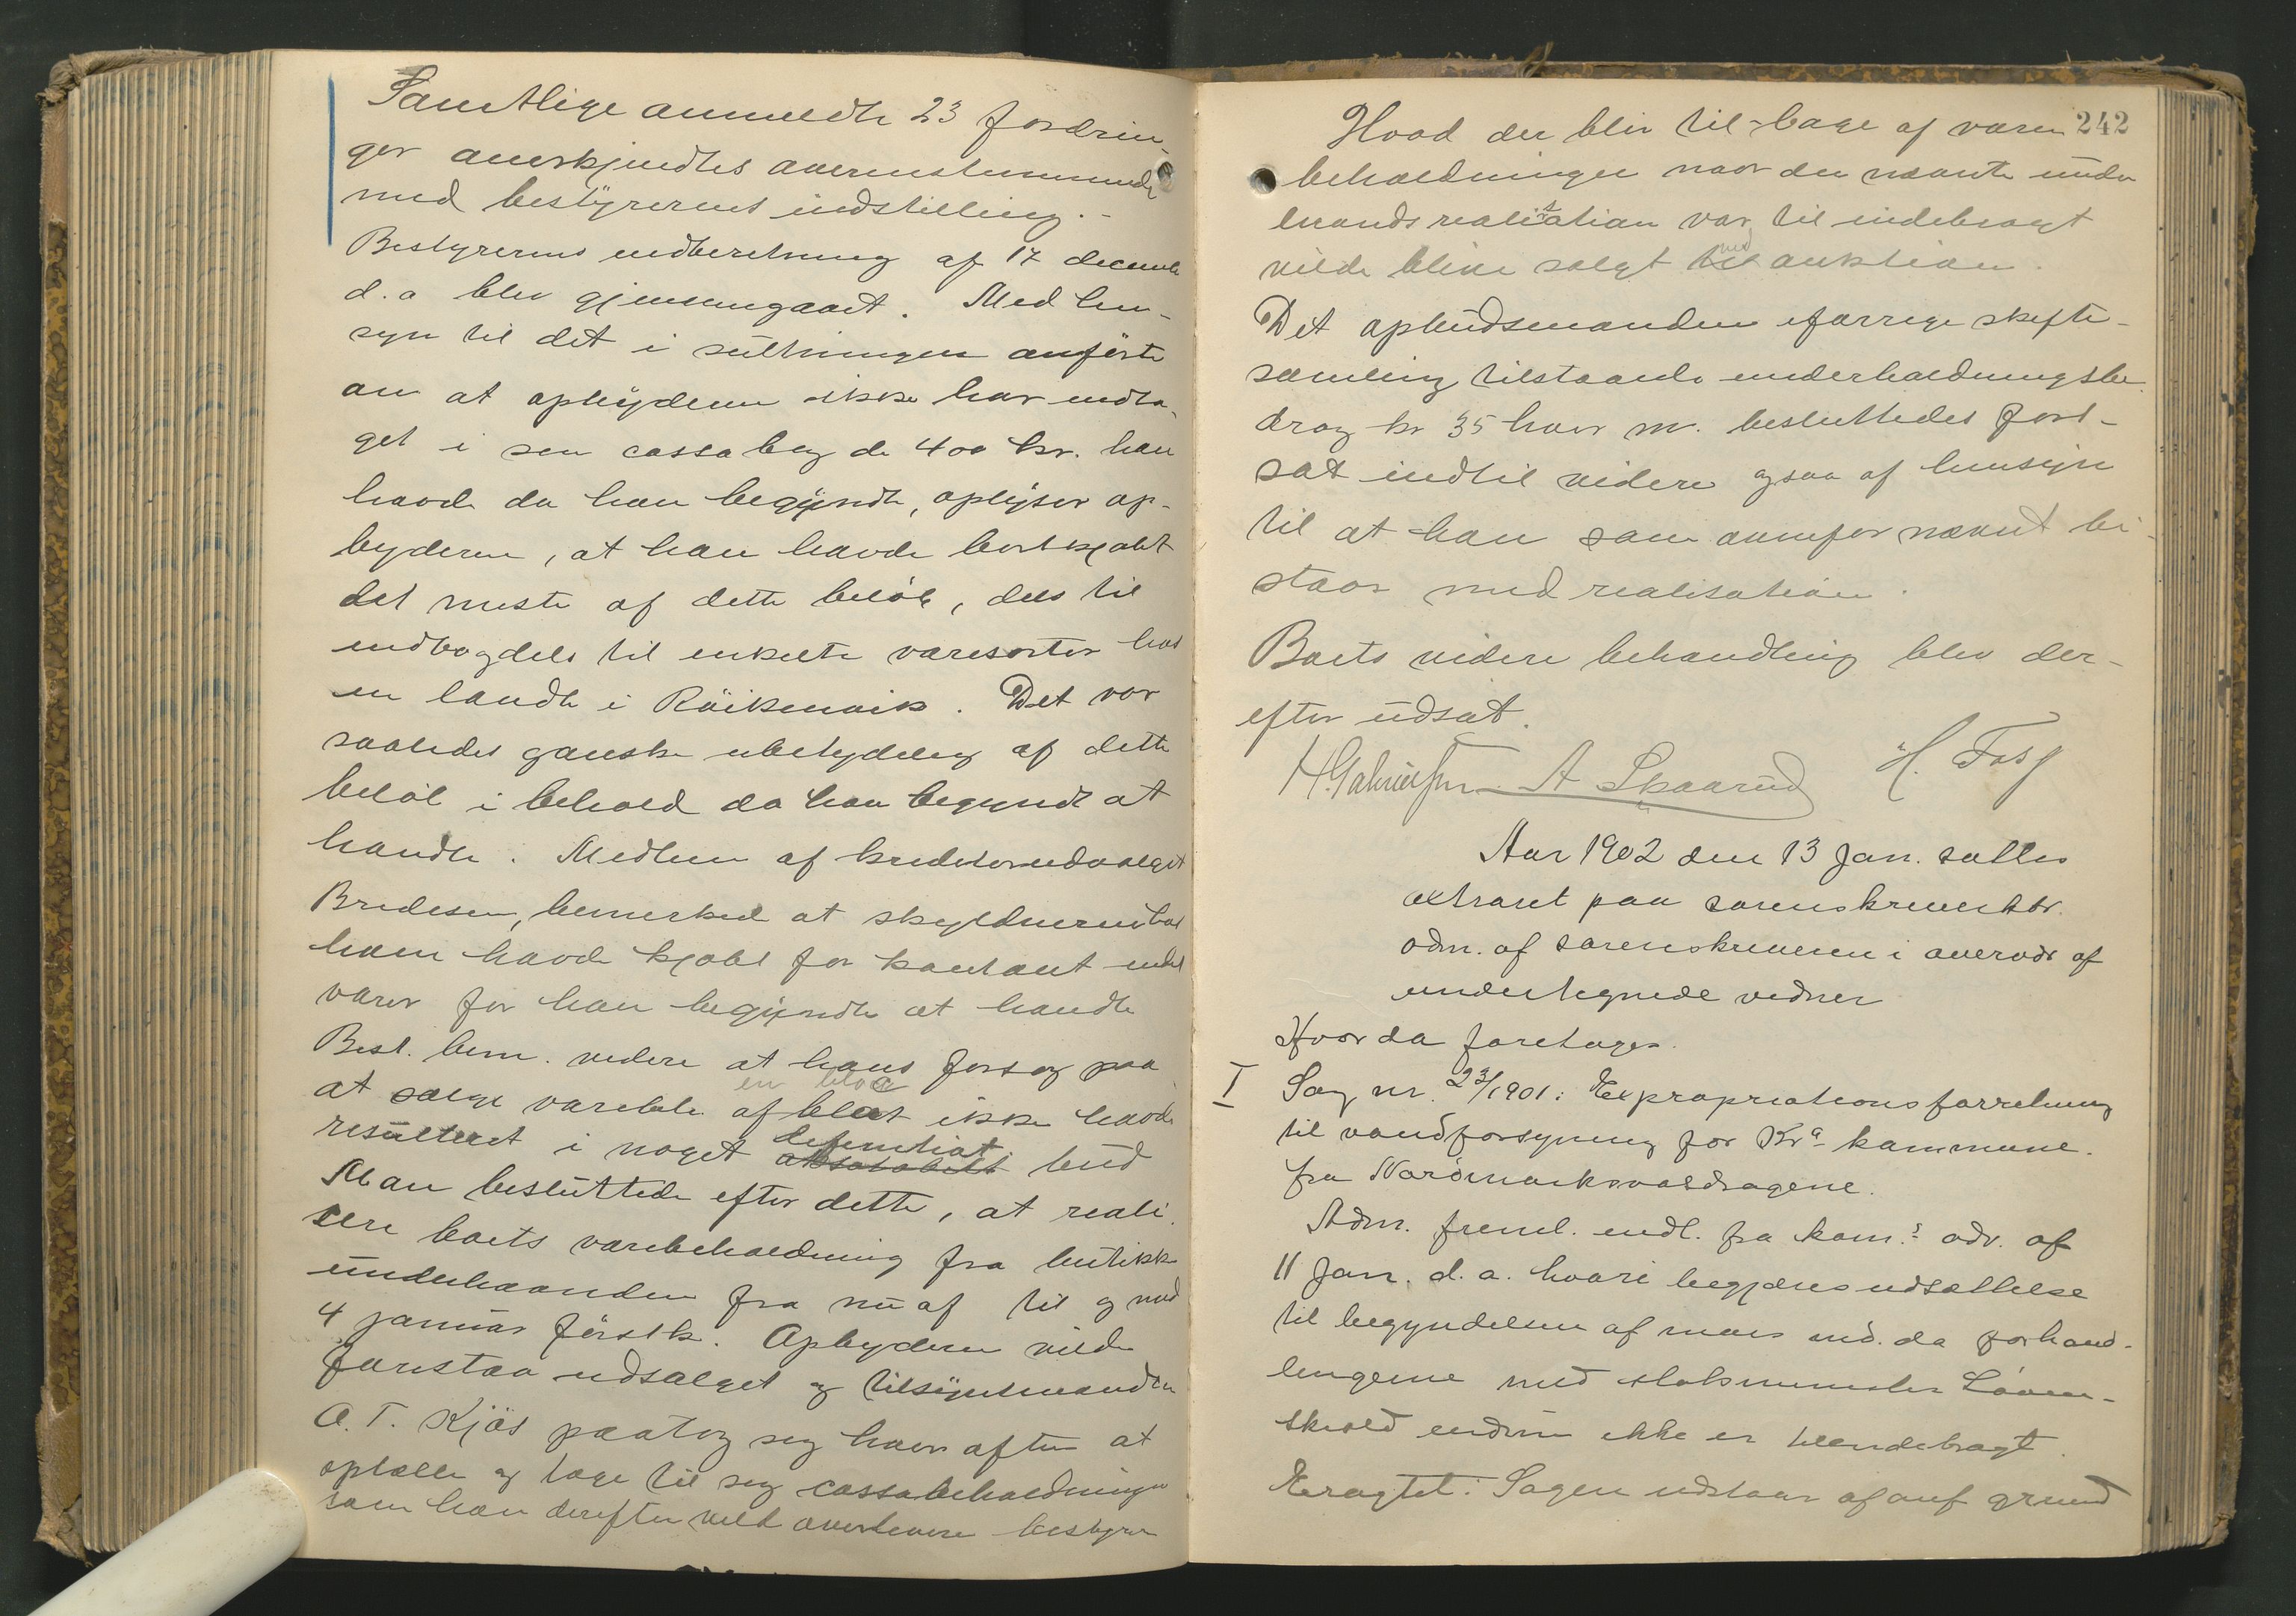 Samtlige anmeldte 23 fordrin-
ger anerkjendtes overensstemmende
med bestyrerens indstilling. -
Bestyrerens indberetning af 17 decembr
d.a blev gjennemgaaet. Med hen-
syn til det i slutningen anførte
om at opbyderen ikke har indta-
get i sen cassabog de 400 kr. han
havde da han begyndte, oplyser op-
byderen, at han havde bortkjøbt
det meste af dette beløb, dels til
indbo og dels til enkelte varesorter hos
en landh i Röikenvik. Det var
saaledes ganske ubetydelig af dette
beløb i behold da han begyndte at
handle. Medlem af kreditorudvalget
Bredesen, bemerked at skyldneren hos
ham havde kjøbt for kontant endel
varer før han begyndte at handle
Best. bem. videre at hans forsøg paa
at sælge varebeh. en bloc ikke havde
resulteret i noget definitivt bud
Man besluttede efter dette, at reali-
sere boets varebeholdning fra butikk
underhaanden fra nu af til og med
4 januar førstk. Opbyderen vilde
forestaa udsalget og tilsynsmanden
O. T. Kjös paatog sig hver aften at
optælle og tage til sig cassabeholdningen
som han derefter vilde overlevere bestyrer
242
Hvad der blir til-bage af vare
beholdningen naar den nævnte under
haands realisation var til endebragt
vilde blive solgt ved auktion.
Det opbudsmanden i forrige skifte-
samling tilstaaede underholdningsbi-
drag kr 35 hver m. besluttedes fort-
sat indtil videre ogsaa af hensyn
til at han som ovenfor nævnt bi-
staar med realisation.
Boets videre behandling blev der-
efter udsat.
H. Gabrielsen A Skaarud H. Foss
Aar 1902 den 13 Jan. sattes
extraret paa sorenskriverktr.
adm. af sorenskriveren i overvær af
undertegnede vidner
Hvor da foretoges.
I Sag nr. 23/1901: Expropriationsforretning
til vandforsyning for Kra kommune.
fra Nordmarksvasdragene.
Adm. freml. indl. fra kom.s adv. af
11 Jan. d.a. hvori begjæres udsættelse
til begyndelsen af mars md. da forhand-
lingerne med statsminister Løven-
skiold endnu ikke er tilendebragt.
Eragtet: Sagen udstaar af anf grund